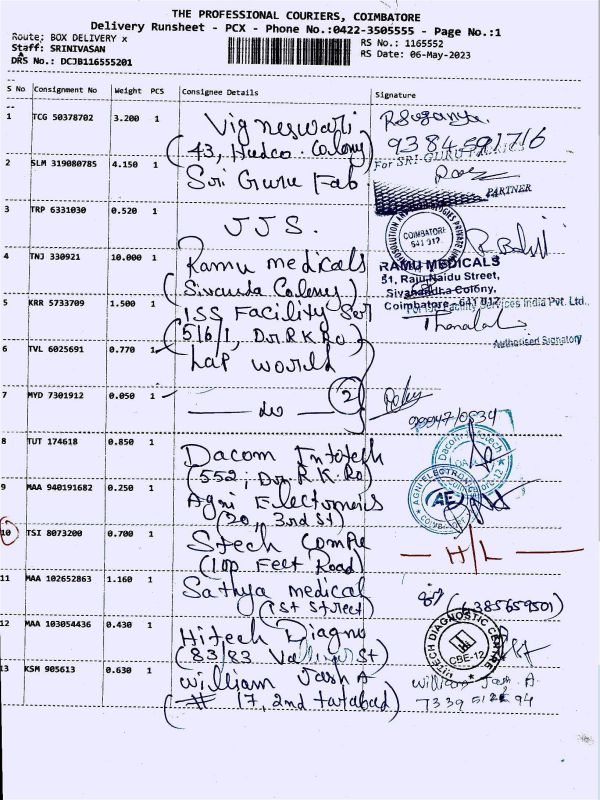 THE PROFESSIONAL COURIERS, COIMBATORE
Delivery Runsheet - PCX - Phone No.:0422-3505555 - Page No.:1
Route; BOX DELIVERY x
RS No.: 1165552
Staff: SRINIVASAN
RS Date: 06-May-2023
DRS No.: DCJB116555201
S No Consignment No Weight PCS Consignee Details Signature
1 TCG 50378702 3.200 1 Vigneswari
(43, Hudco Colony)
9384591716
2 SLM 319080785 4.150 1 Sri Guru Fab
For SRI GURU
PARTNER
3 TRP 6331030 0.520 1 JJS.
COIMBATORE
641 012
4 TNJ 330921 10.000 1 Ramu medicals
(Sivanda Colony)
RAMU MEDICALS
51, Raju Naidu Street,
Sivanandha Colony,
Coimbatore - 641 012
5 KRR 5733709 1.500 1 ISS Facility Ser
(516/1, Dr.R.K.Ro)
Facility Services India Pvt. Ltd.,
Authorised Signatory
6 TVL 6025691 0.770 1 Lap world
7 MYD 7301912 0.050 1 — do — (2)
8 TUT 174618 0.850 1 Dacom Infotech
(552, Dr.R.K.Ro)
Dacom Infotech
9 MAA 940191682 0.250 1 Agni Electronics
(20, 3rd St)
AGNI ELECTRONICS
AE
10 TSI 8073200 0.700 1 Stech Compu
(100 Feet Road)
— H/L —
11 MAA 102652863 1.160 1 Sathya medical
(1st Street)
12 MAA 103054436 0.430 1 Hitech Diagno
(83/83 St)
HITECH DIAGNOSTIC CENTRE
CBE-12
13 KSM 905613 0.630 1 William Jash A
(# 17, 2nd tatabad)
William Jash. A